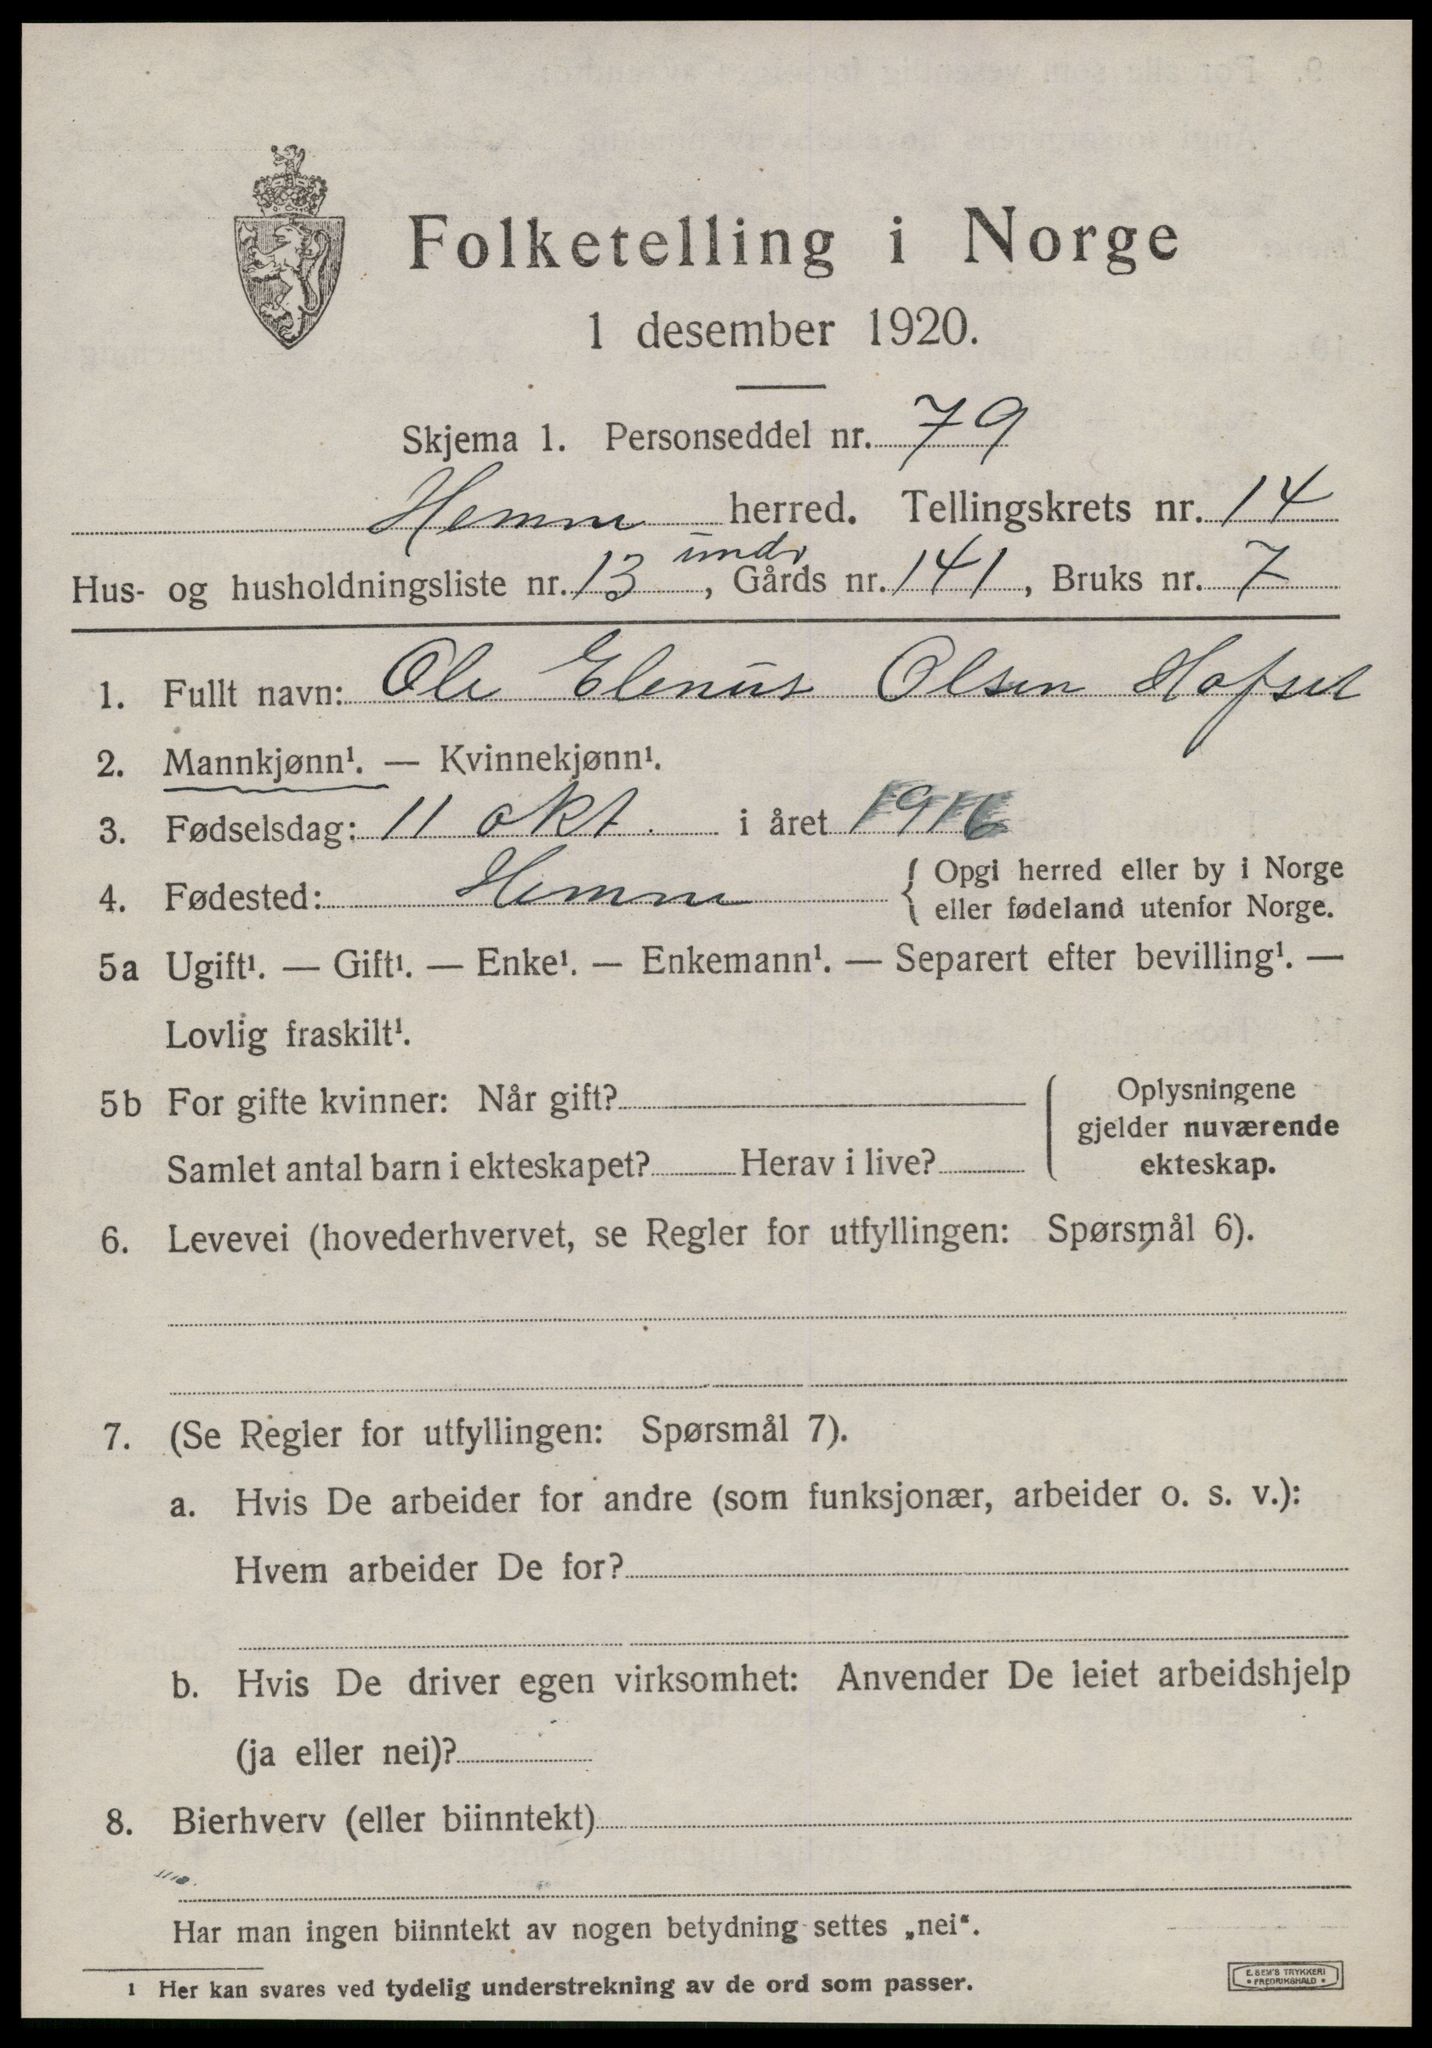 Folketelling i Norge
1 desember 1920.
Skjema 1. Personseddel nr. 79
Hemne herred. Tellingskrets nr. 14
undr
Hus- og husholdningsliste nr. 13, Gårds nr. 141, Bruks nr. 7
1. Fullt navn: Ole Elenius Olsen Hofset
2. Mannkjønn¹. — Kvinnekjønn¹.
3. Fødselsdag: 11 okt. i året 1916
4. Fødested: Hemne { Opgi herred eller by i Norge
eller fødeland utenfor Norge.
5a Ugift¹. — Gift¹. — Enke¹. — Enkemann¹. — Separert efter bevilling¹. —
Lovlig fraskilt¹.
5b For gifte kvinner: Når gift?
Samlet antal barn i ekteskapet? Herav i live?
Oplysningene
gjelder nuværende
ekteskap.
6. Levevei (hovederhvervet, se Regler for utfyllingen: Spørsmål 6).
7. (Se Regler for utfyllingen: Spørsmål 7).
a. Hvis De arbeider for andre (som funksjonær, arbeider o. s. v.):
Hvem arbeider De for?
b. Hvis De driver egen virksomhet: Anvender De leiet arbeidshjelp
(ja eller nei)?
8. Bierhverv (eller biinntekt)
Har man ingen biinntekt av nogen betydning settes „nei“.
¹ Her kan svares ved tydelig understrekning av de ord som passer.
E. SEM'S TRYKKERI
• FREDRIKSHALD •